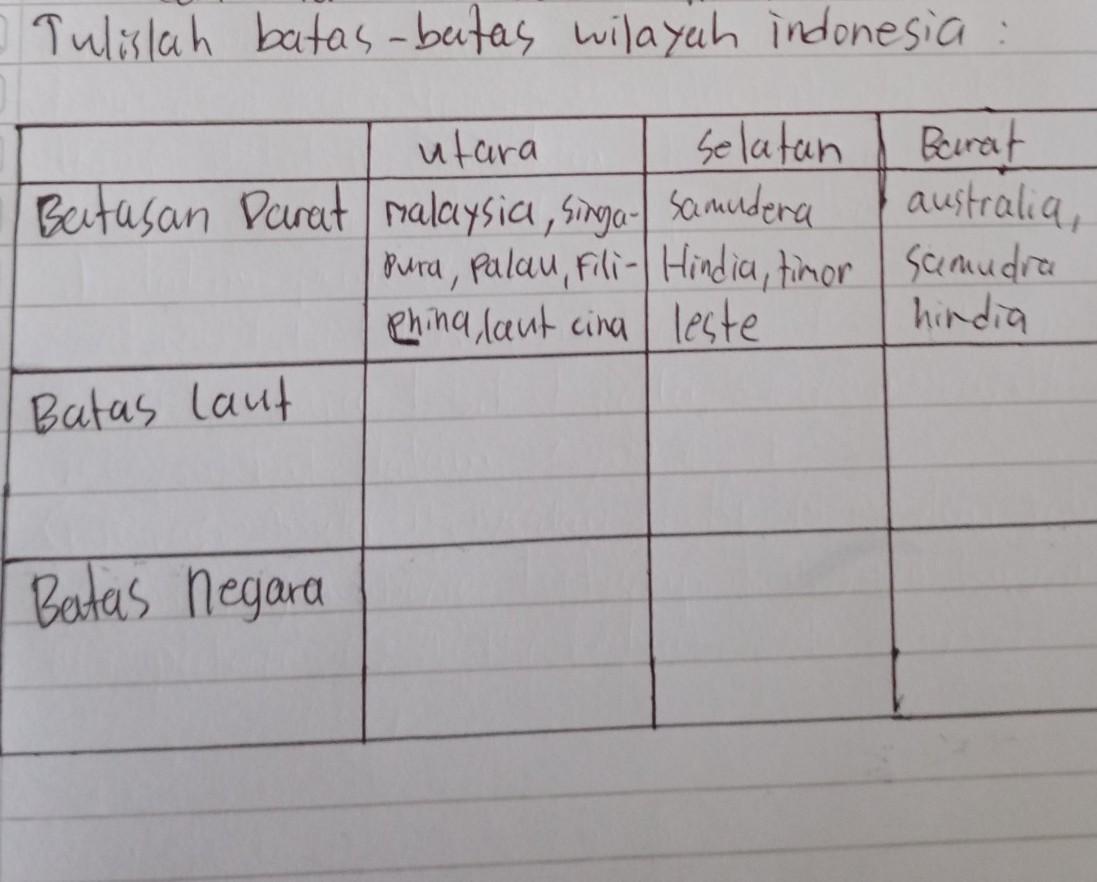 Tulislah batas-batas wilayah indonesia :
utara selatan Barat
Batasan Darat malaysia, singa- samudera australia,
pura, palau, Fili- Hindia, timor samudra
phina, laut cina leste hindia
Batas laut
Batas negara